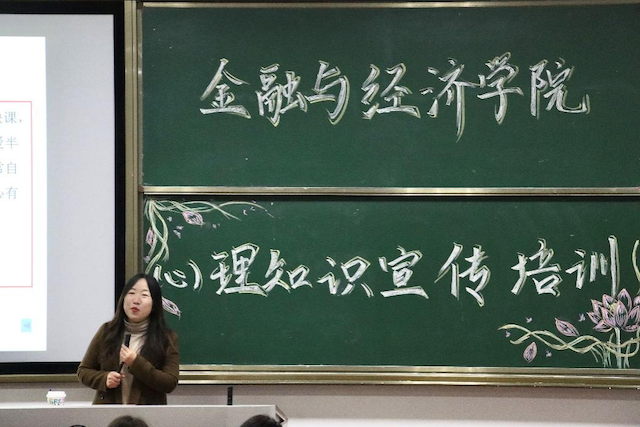 金融与经济学院
心理知识宣传培训
课，
半
自
有